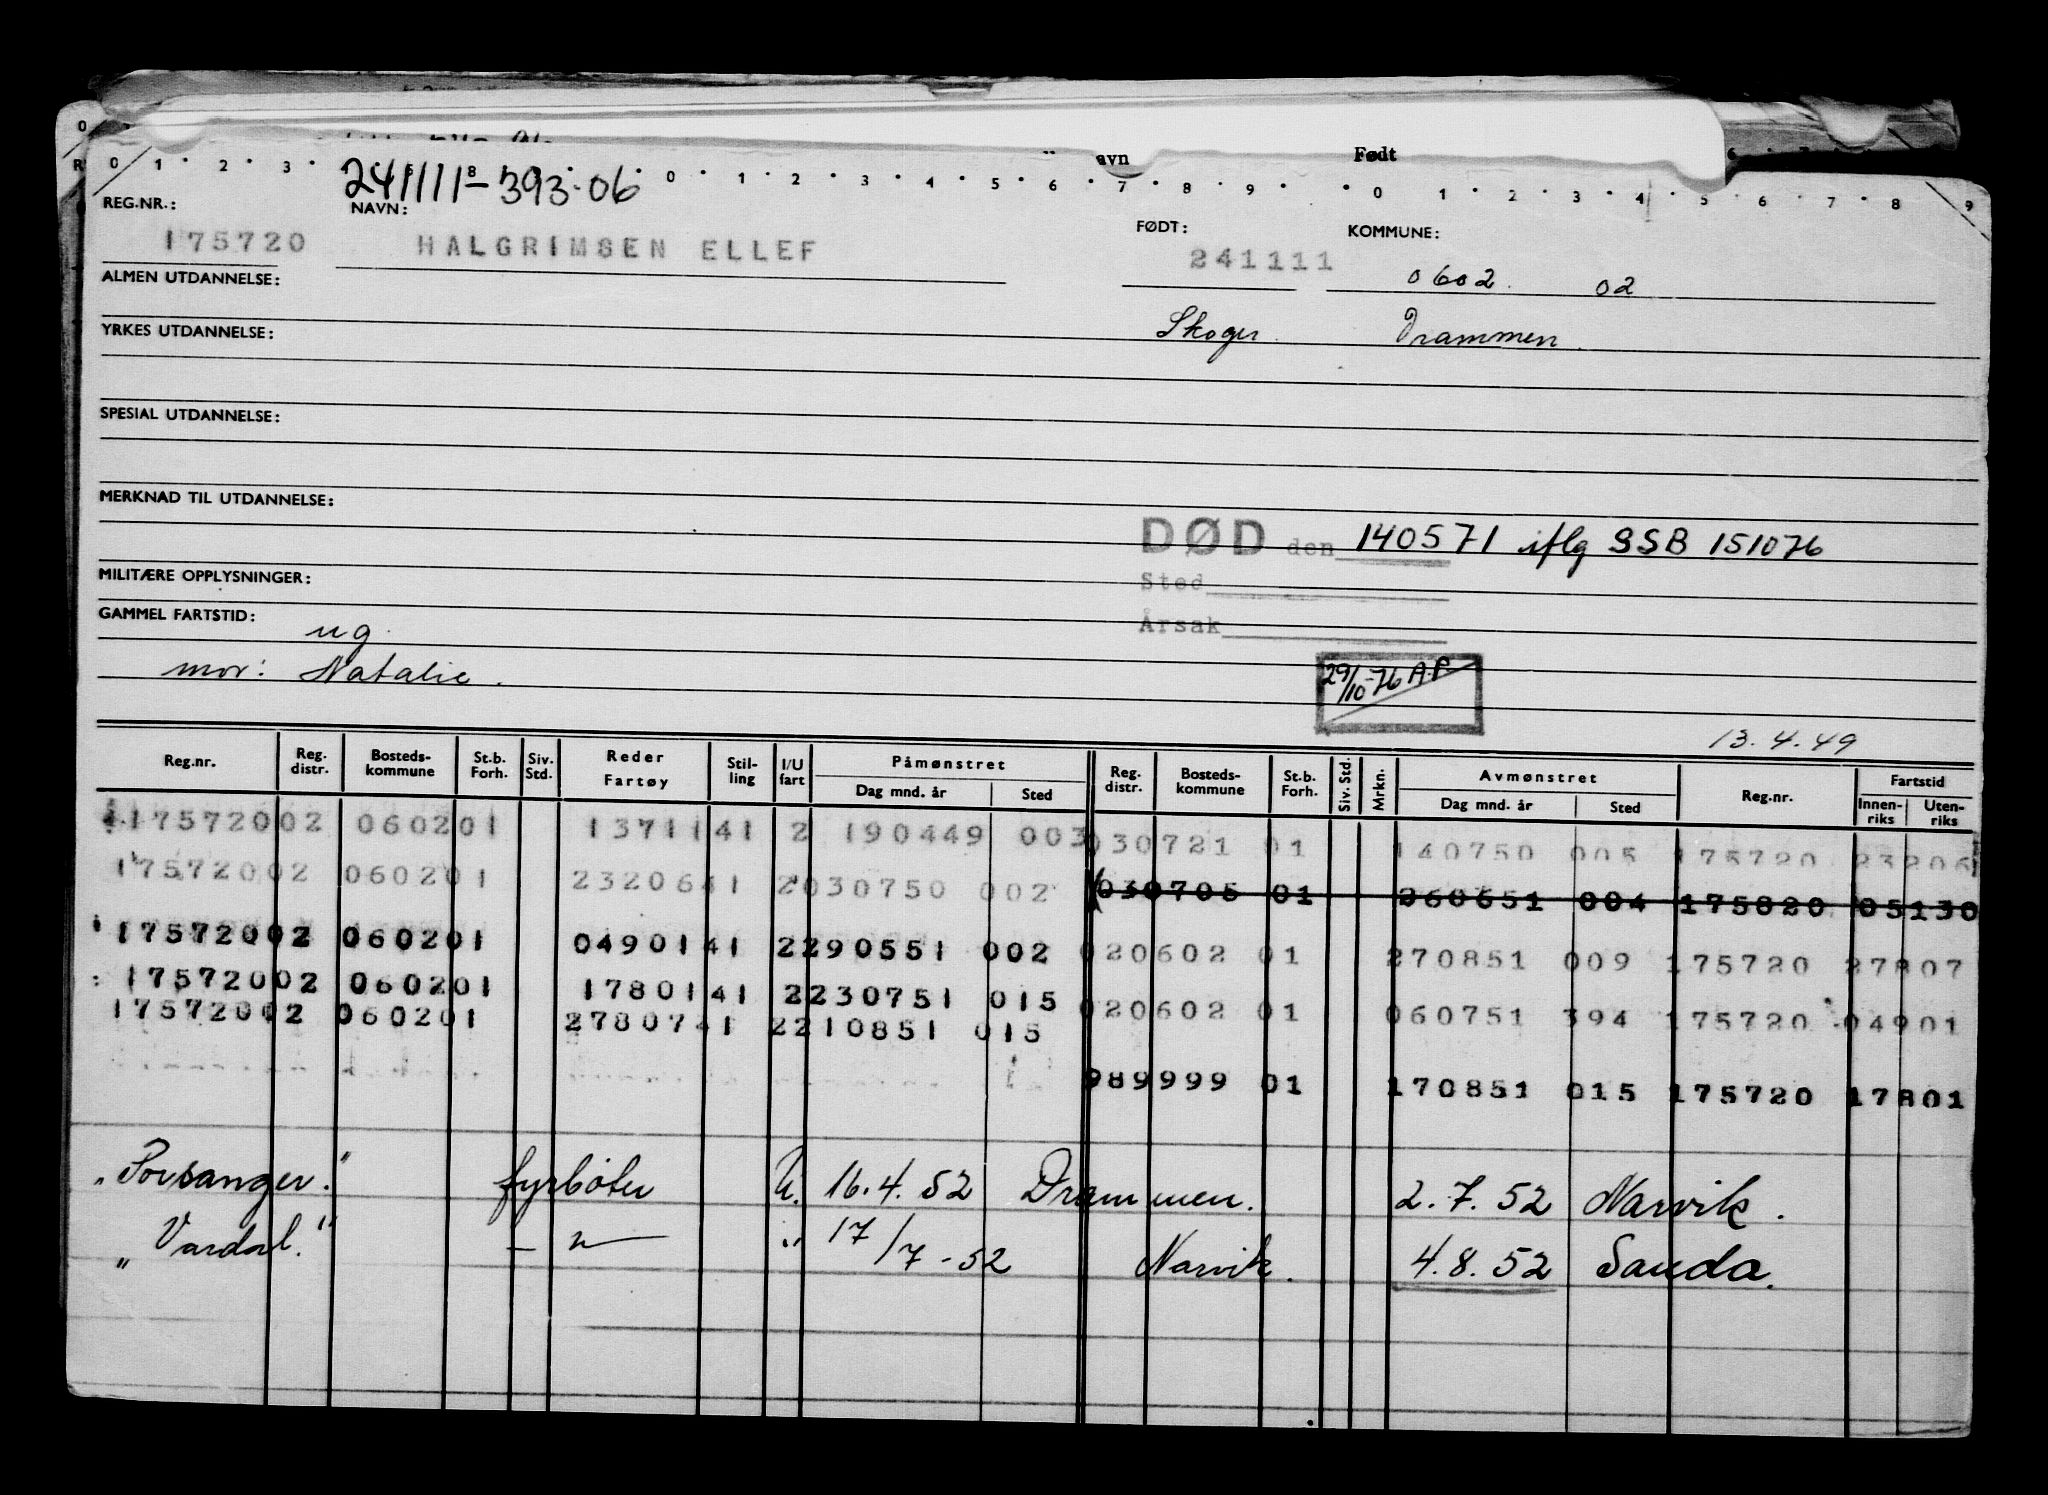 avn Født
0 1 2 3 8 0 1 2 3 4 5 6 7 8 9 0 1 2 3 4 5 6 7 8 9
241111-393-06
REG.NR.: NAVN: FØDT: KOMMUNE:
175720 HALGRIMSEN ELLEF 241111 0602. 02
ALMEN UTDANNELSE:
YRKES UTDANNELSE: Skoger. Drammen.
SPESIAL UTDANNELSE:
MERKNAD TIL UTDANNELSE:
DØD den 140571 iflg SSB 151076
MILITÆRE OPPLYSNINGER: Sted
GAMMEL FARTSTID: ug. Årsak
mor: Natalie.
29/10-76 A.P
13.4.49
Reg.nr. Reg. distr. Bosteds-kommune St.b. Forh. Siv. Std. Reder Fartøy Stil-ling I/U fart Påmønstret Dag mnd. år Sted Reg. distr. Bosteds-kommune St.b. Forh. Siv. Std. Mrkn. Avmønstret Dag mnd. år Sted Reg.nr. Fartstid Innen-riks Uten-riks
17572002 060201 1371141 2 190449 003 030721 01 140750 005 175720 23206
17572002 060201 2320641 2030750 002 030705 01 260651 004 175820 05130
17572002 060201 0490141 2290551 002 020602 01 270851 009 175720 27807
17572002 060201 1780141 2230751 015 020602 01 060751 394 175720 04901
17572002 060201 2780741 2210851 015
989999 01 170851 015 175720 17801
"Porsanger." fyrbøter U. 16.4.52 Drammen. 2.7.52 Narvik.
"Vardal." — " — " 17/7-52 Narvik. 4.8.52 Sauda.